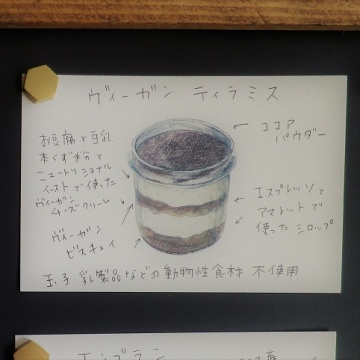 ヴィーガン ティラミス
ココア
パウダー
お豆腐と豆乳
本くず粉と
ニュートリショナル
イーストで使った
ヴィーガン
チーズクリーム
ヴィーガン
ビスキュイ
エスプレッソと
アマレットで
使ったシロップ
玉子、乳製品などの動物性食材 不使用
モンブラン